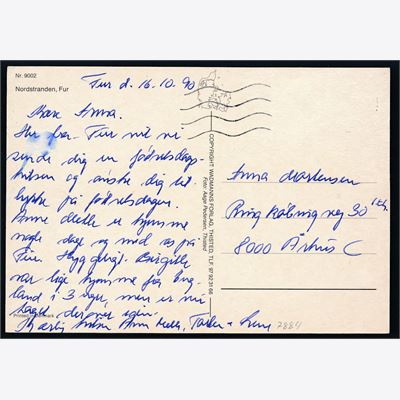 Nr. 9002
Nordstranden, Fur
Fur d. 16.10.90
Kære Anna.
Her fra Fur vil vi
sende dig en fødselsdags-
hilsen og ønske dig til
lykke på fødselsdagen.
Anne Mette er hjemme
nogle dage og med os på
Fur. Hyggeligt. Birgitte
var lige hjemme fra Eng-
land i 3 uger, men er nu
taget derover igen.
Kærlig hilsen Anne Mette, +
Anna Mortensen
Ringkøbing vej 30
8000 Århus C
COPYRIGHT WADMANNS FORLAG, THISTED, TLF. 97 92 31 66
Foto: Aage Pedersen, Thisted
Printed in Denmark
7884